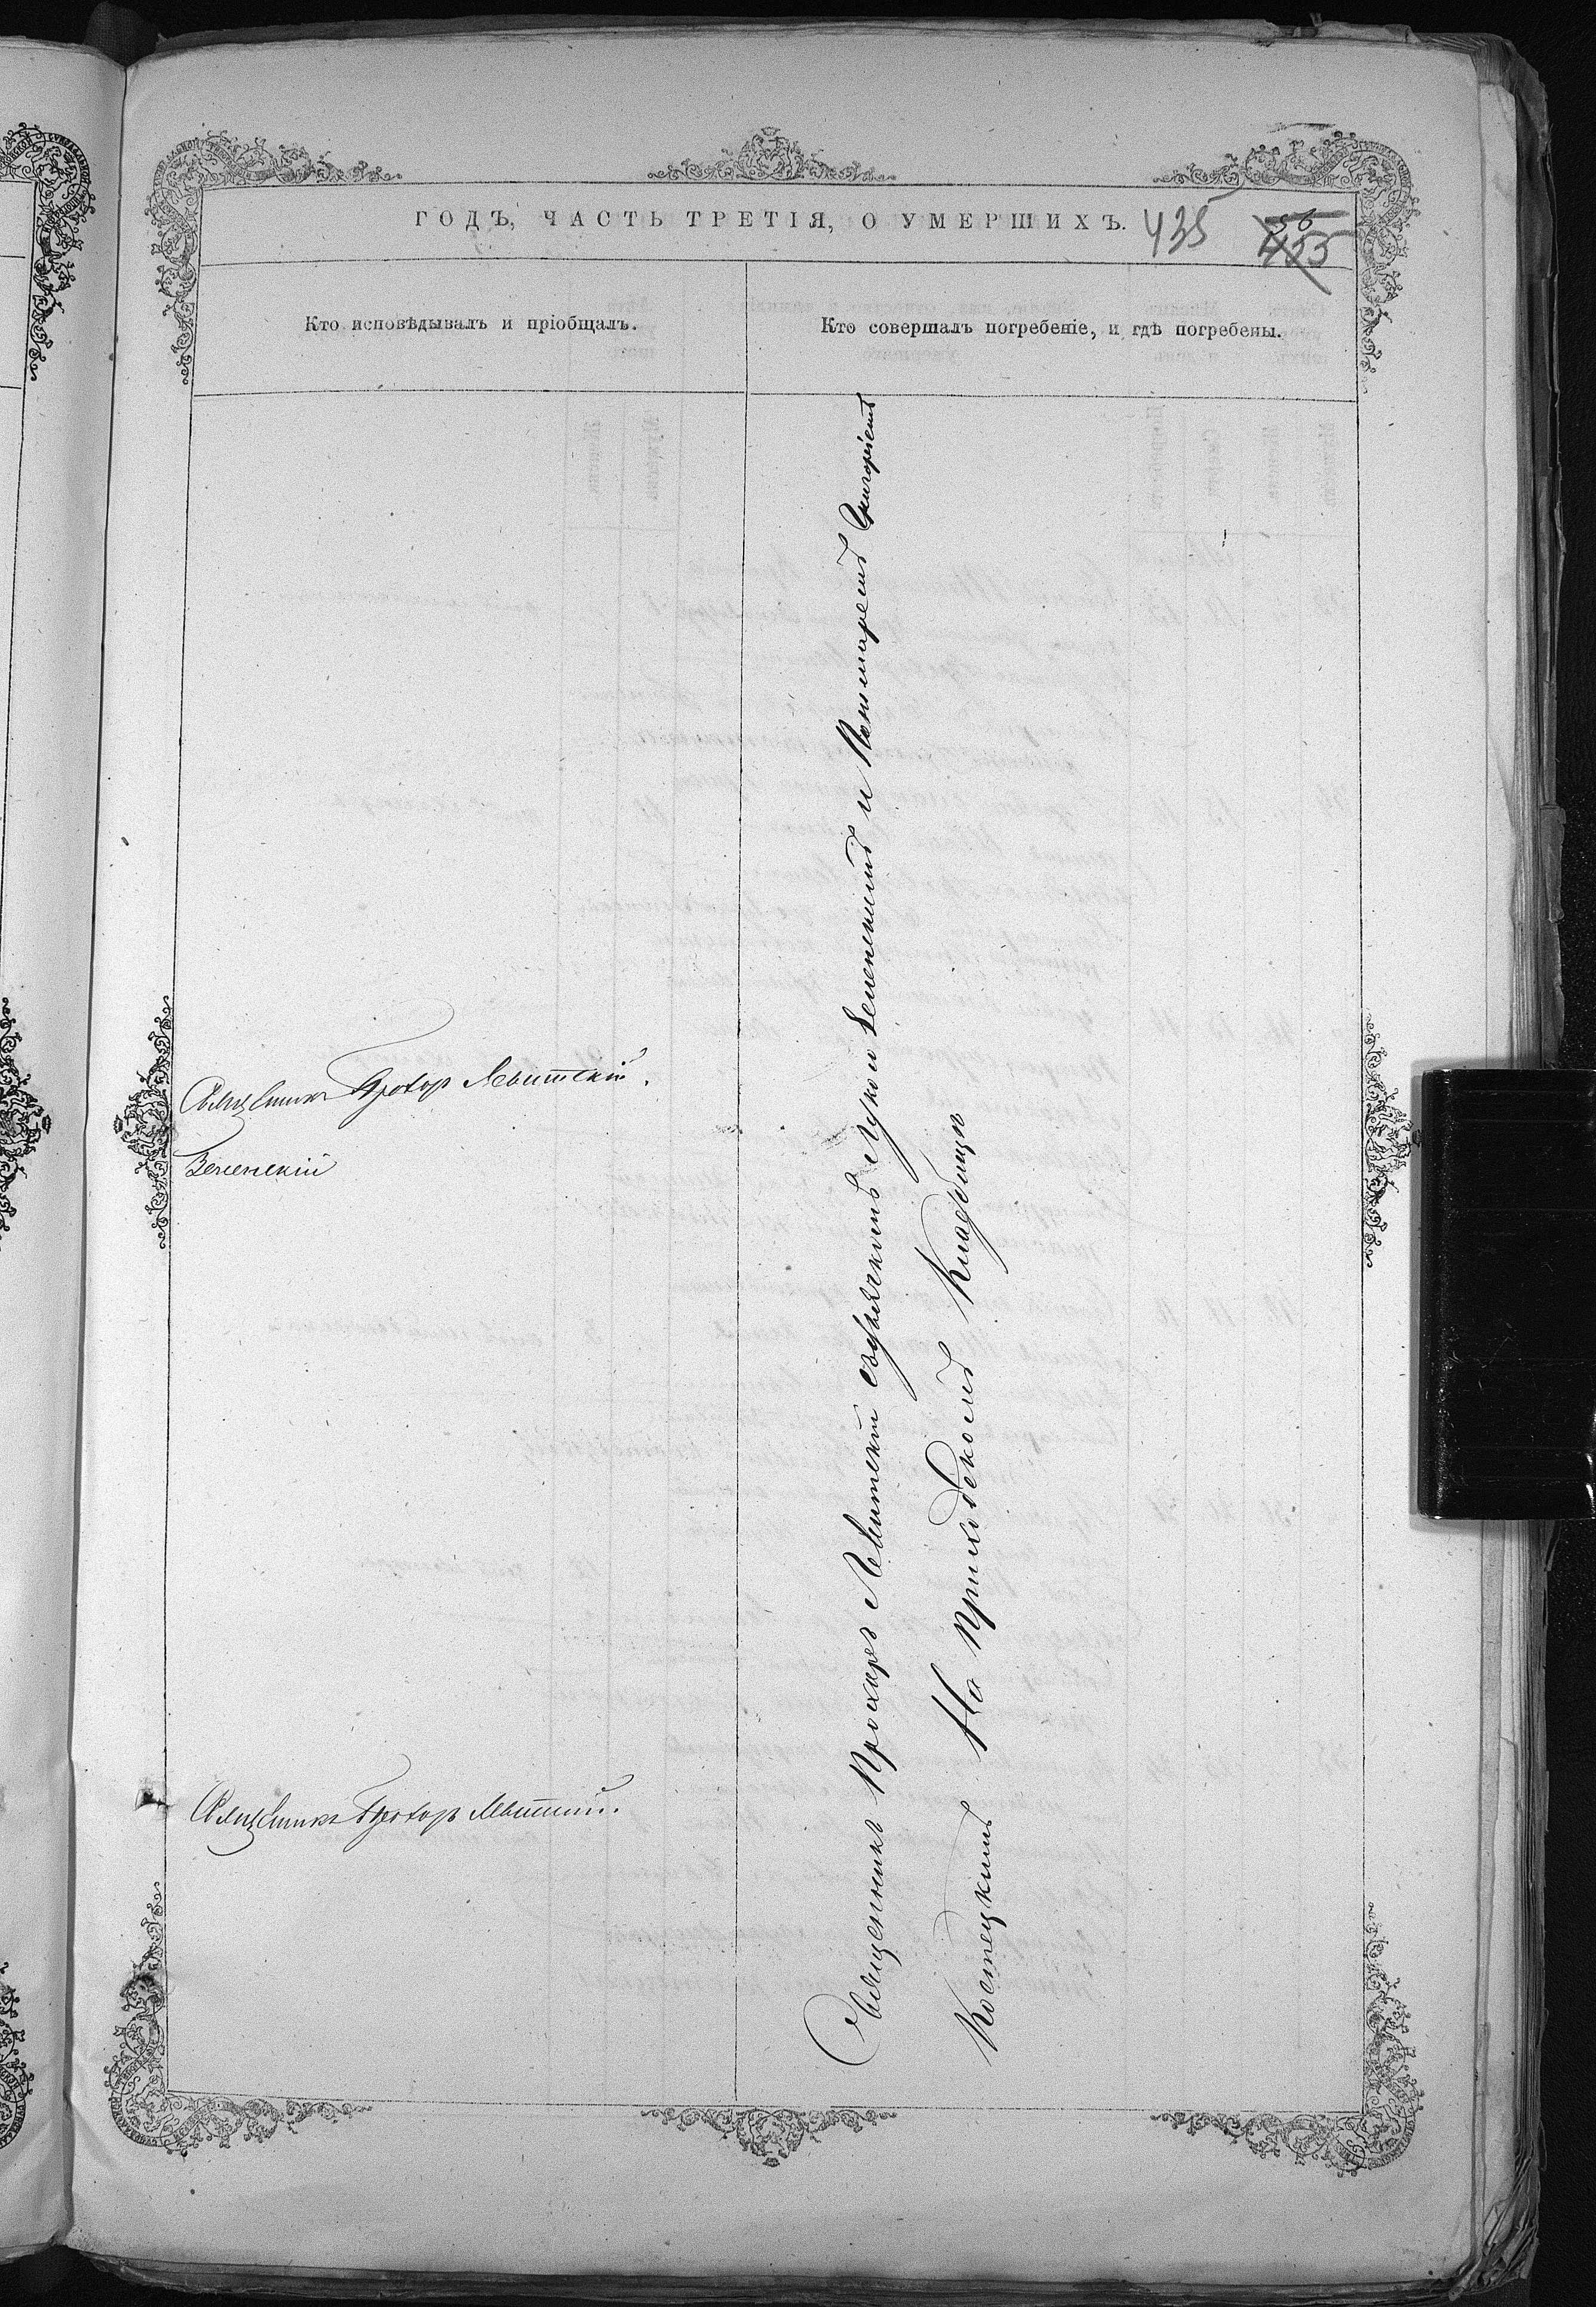 ГОДЪ, ЧАСТЬ ТРЕТІЯ, О УМЕРШИХЪ. 435
Кто исповѣдывалъ и пріобщалъ.
Кто совершалъ погребеніе, и гдѣ погребены.
Священникъ Прохоръ Левитскій.
Зеленскій
Священникъ Прохоръ Левитскій.
Священникъ Прохоръ Левитскій съ дьячкомъ Лукою Зеленскимъ и Пономаремъ Григоріемъ
Костецкимъ На приходскомъ кладбищѣ